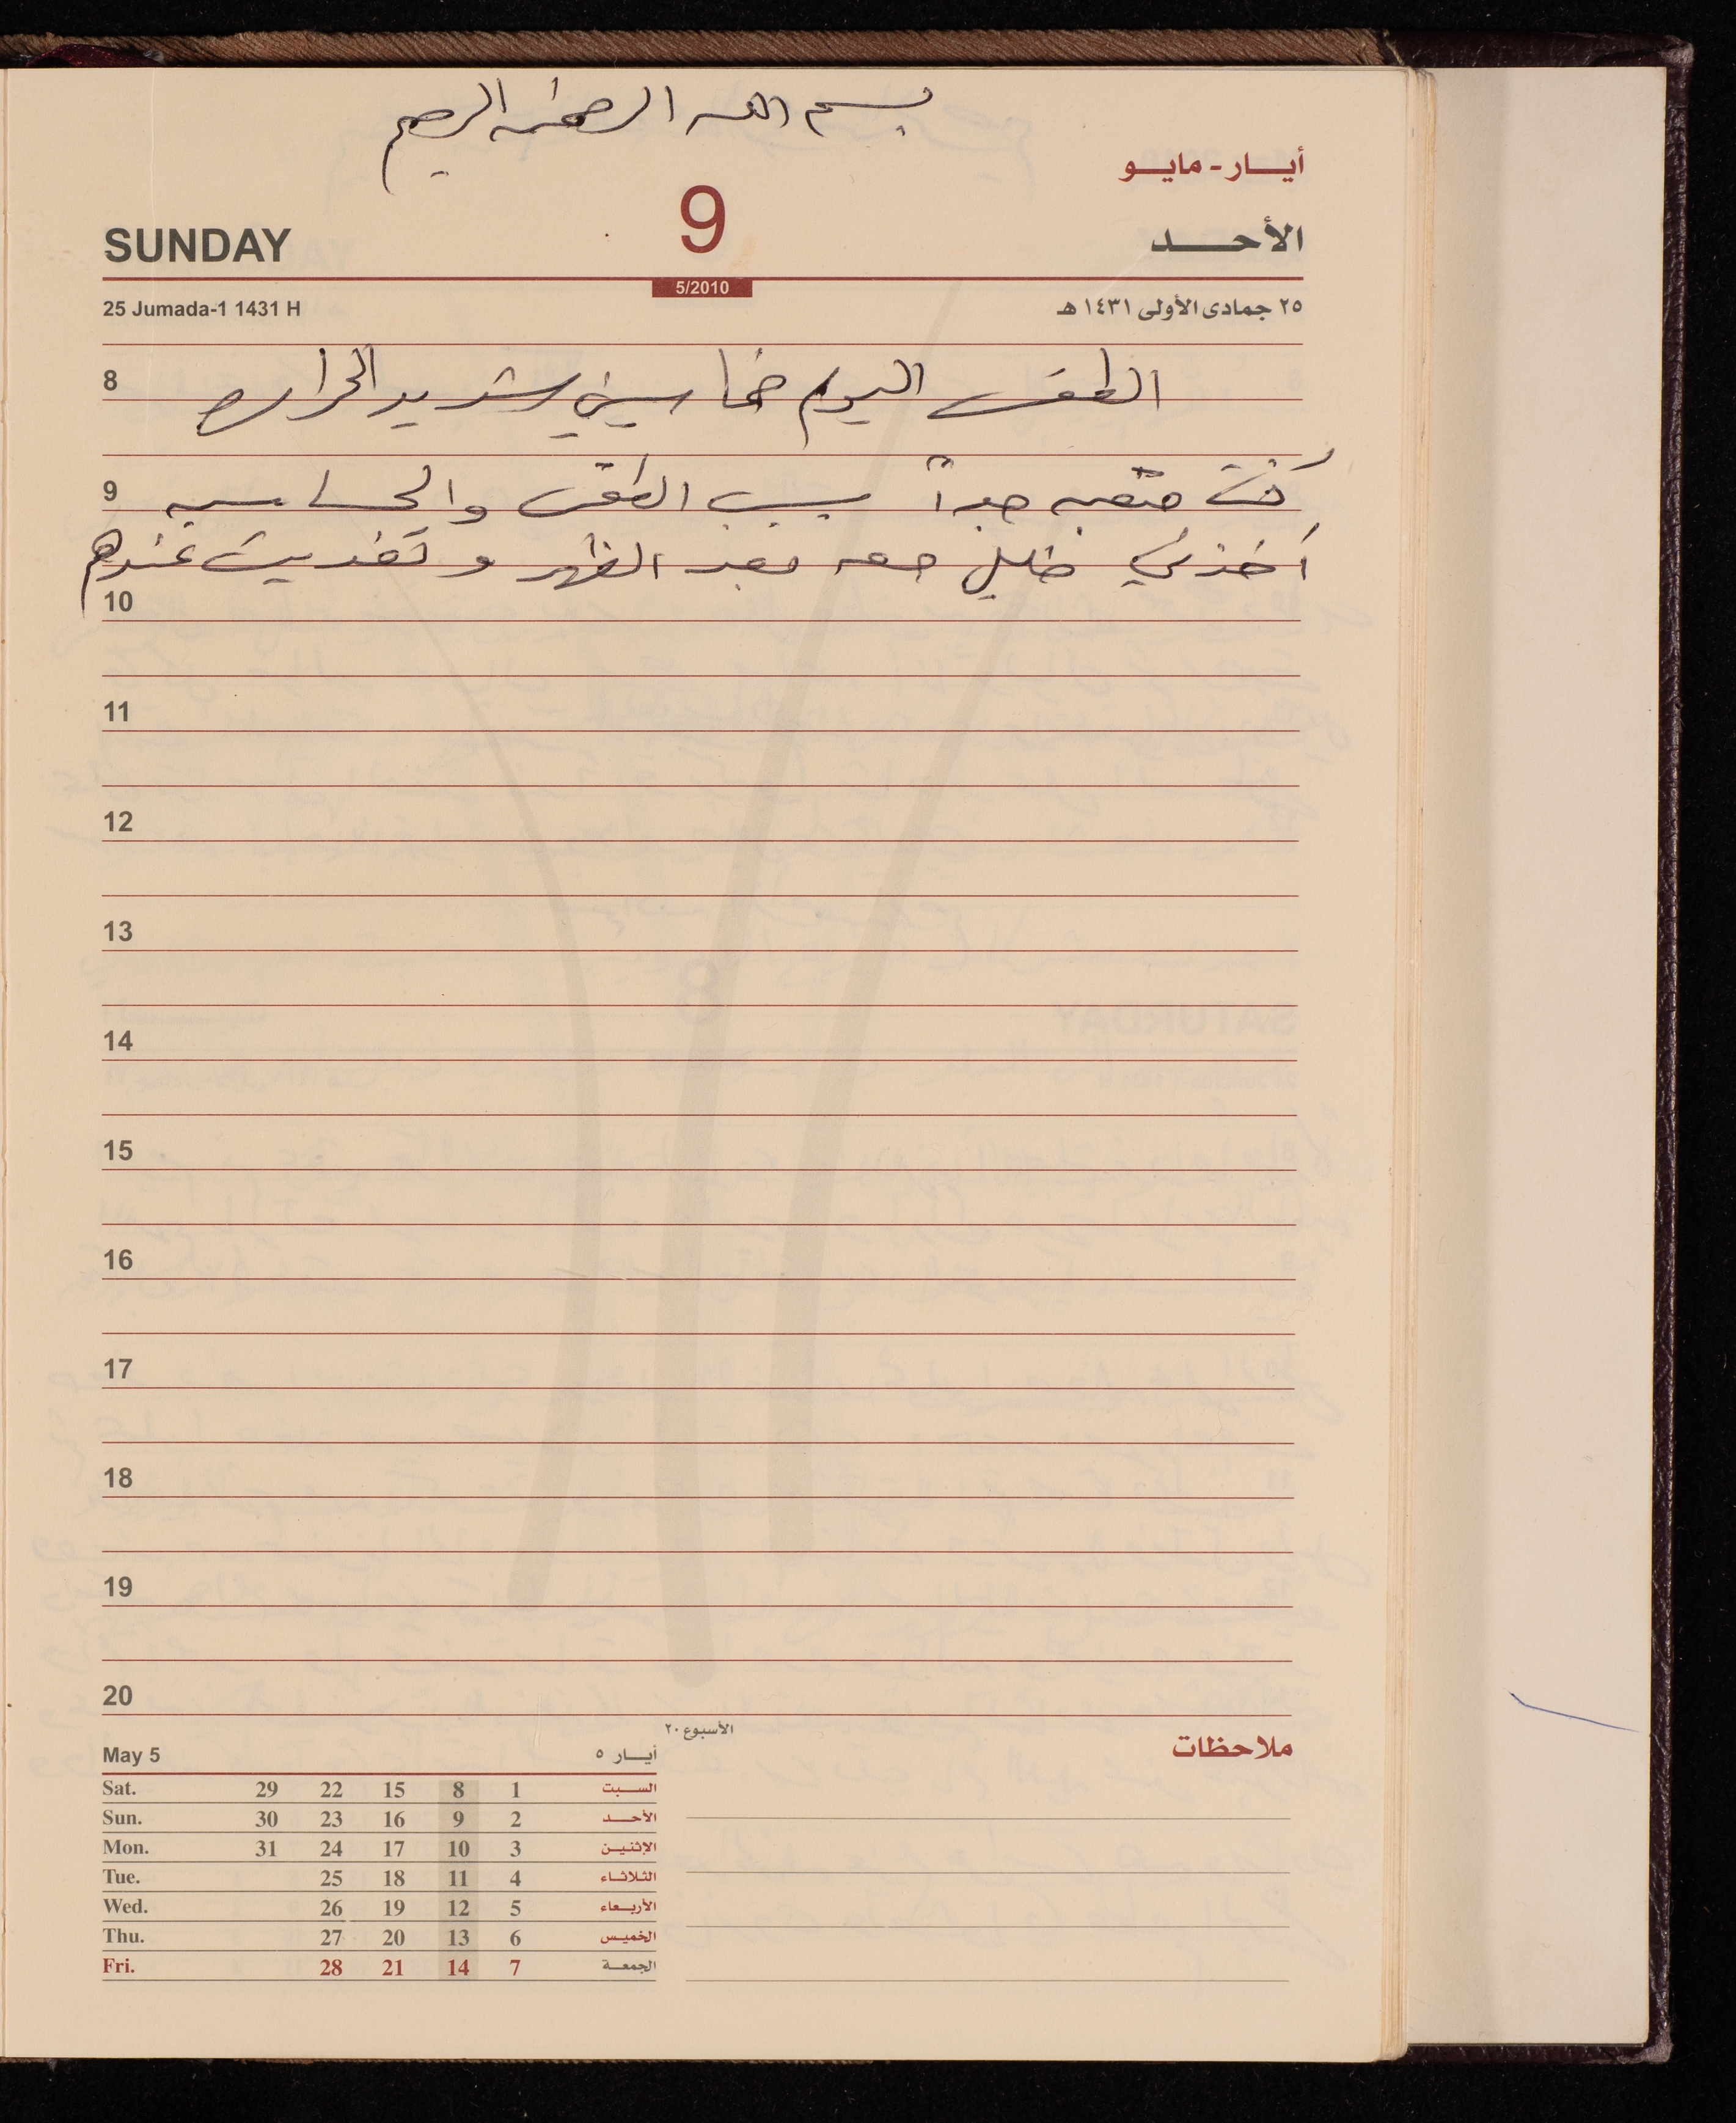 بسم الله الرحمن الرحيم
أيــار - مايــو
SUNDAY 9 الأحــد
5/2010
25 Jumada-1 1431 H ٢٥ جمادى الأولى ١٤٣١ هـ
8 الطقس اليوم خماسيني شديد الحراره
9 كنت متعبه جداً بسبب الطقس والحساسيه
أخذني خليل معه بعد الظهر وتغديت عندهم
10
11
12
13
14
15
16
17
18
19
20
الأسبوع ٢٠
ملاحظات
May 5 أيــار ٥
Sat. 29 22 15 8 1 السبت
Sun. 30 23 16 9 2 الأحــد
Mon. 31 24 17 10 3 الإثنيـن
Tue. 25 18 11 4 الثلاثـاء
Wed. 26 19 12 5 الأربعـاء
Thu. 27 20 13 6 الخميـس
Fri. 28 21 14 7 الجمعـة